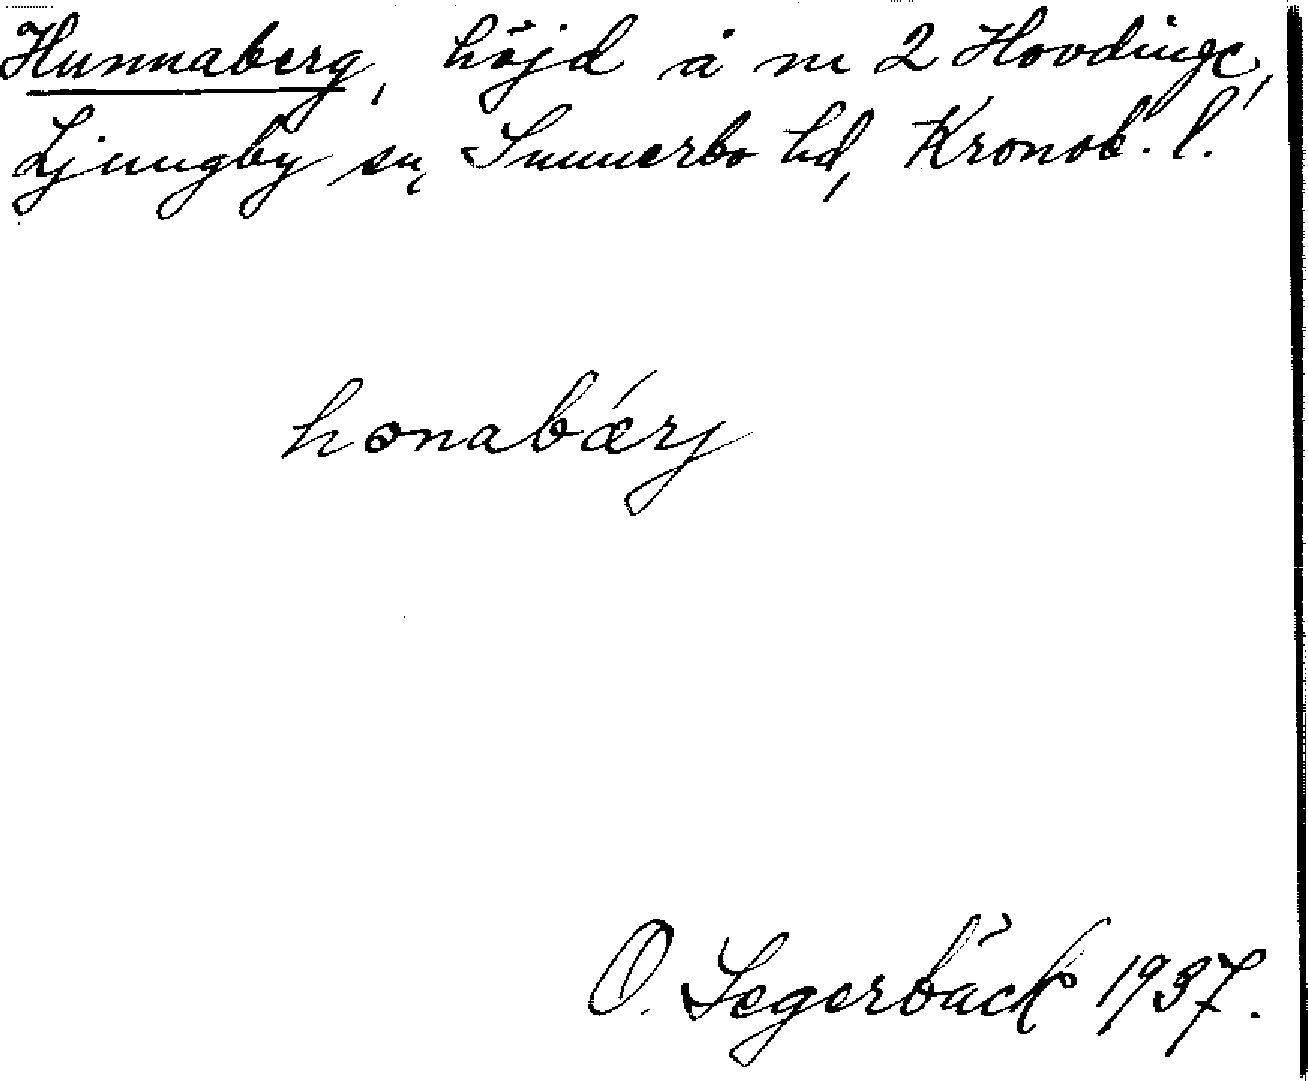 Hunnaberg, höjd å nr 2 Hovdinge,
Ljungby sn, Sunnerbo hd, Kronob. l.
hɷnabǽrj
O. Segerbäck 1937.